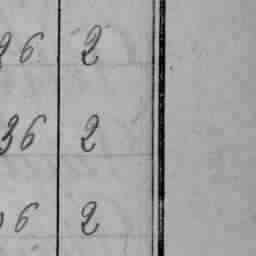 26 2
36 2
6 2